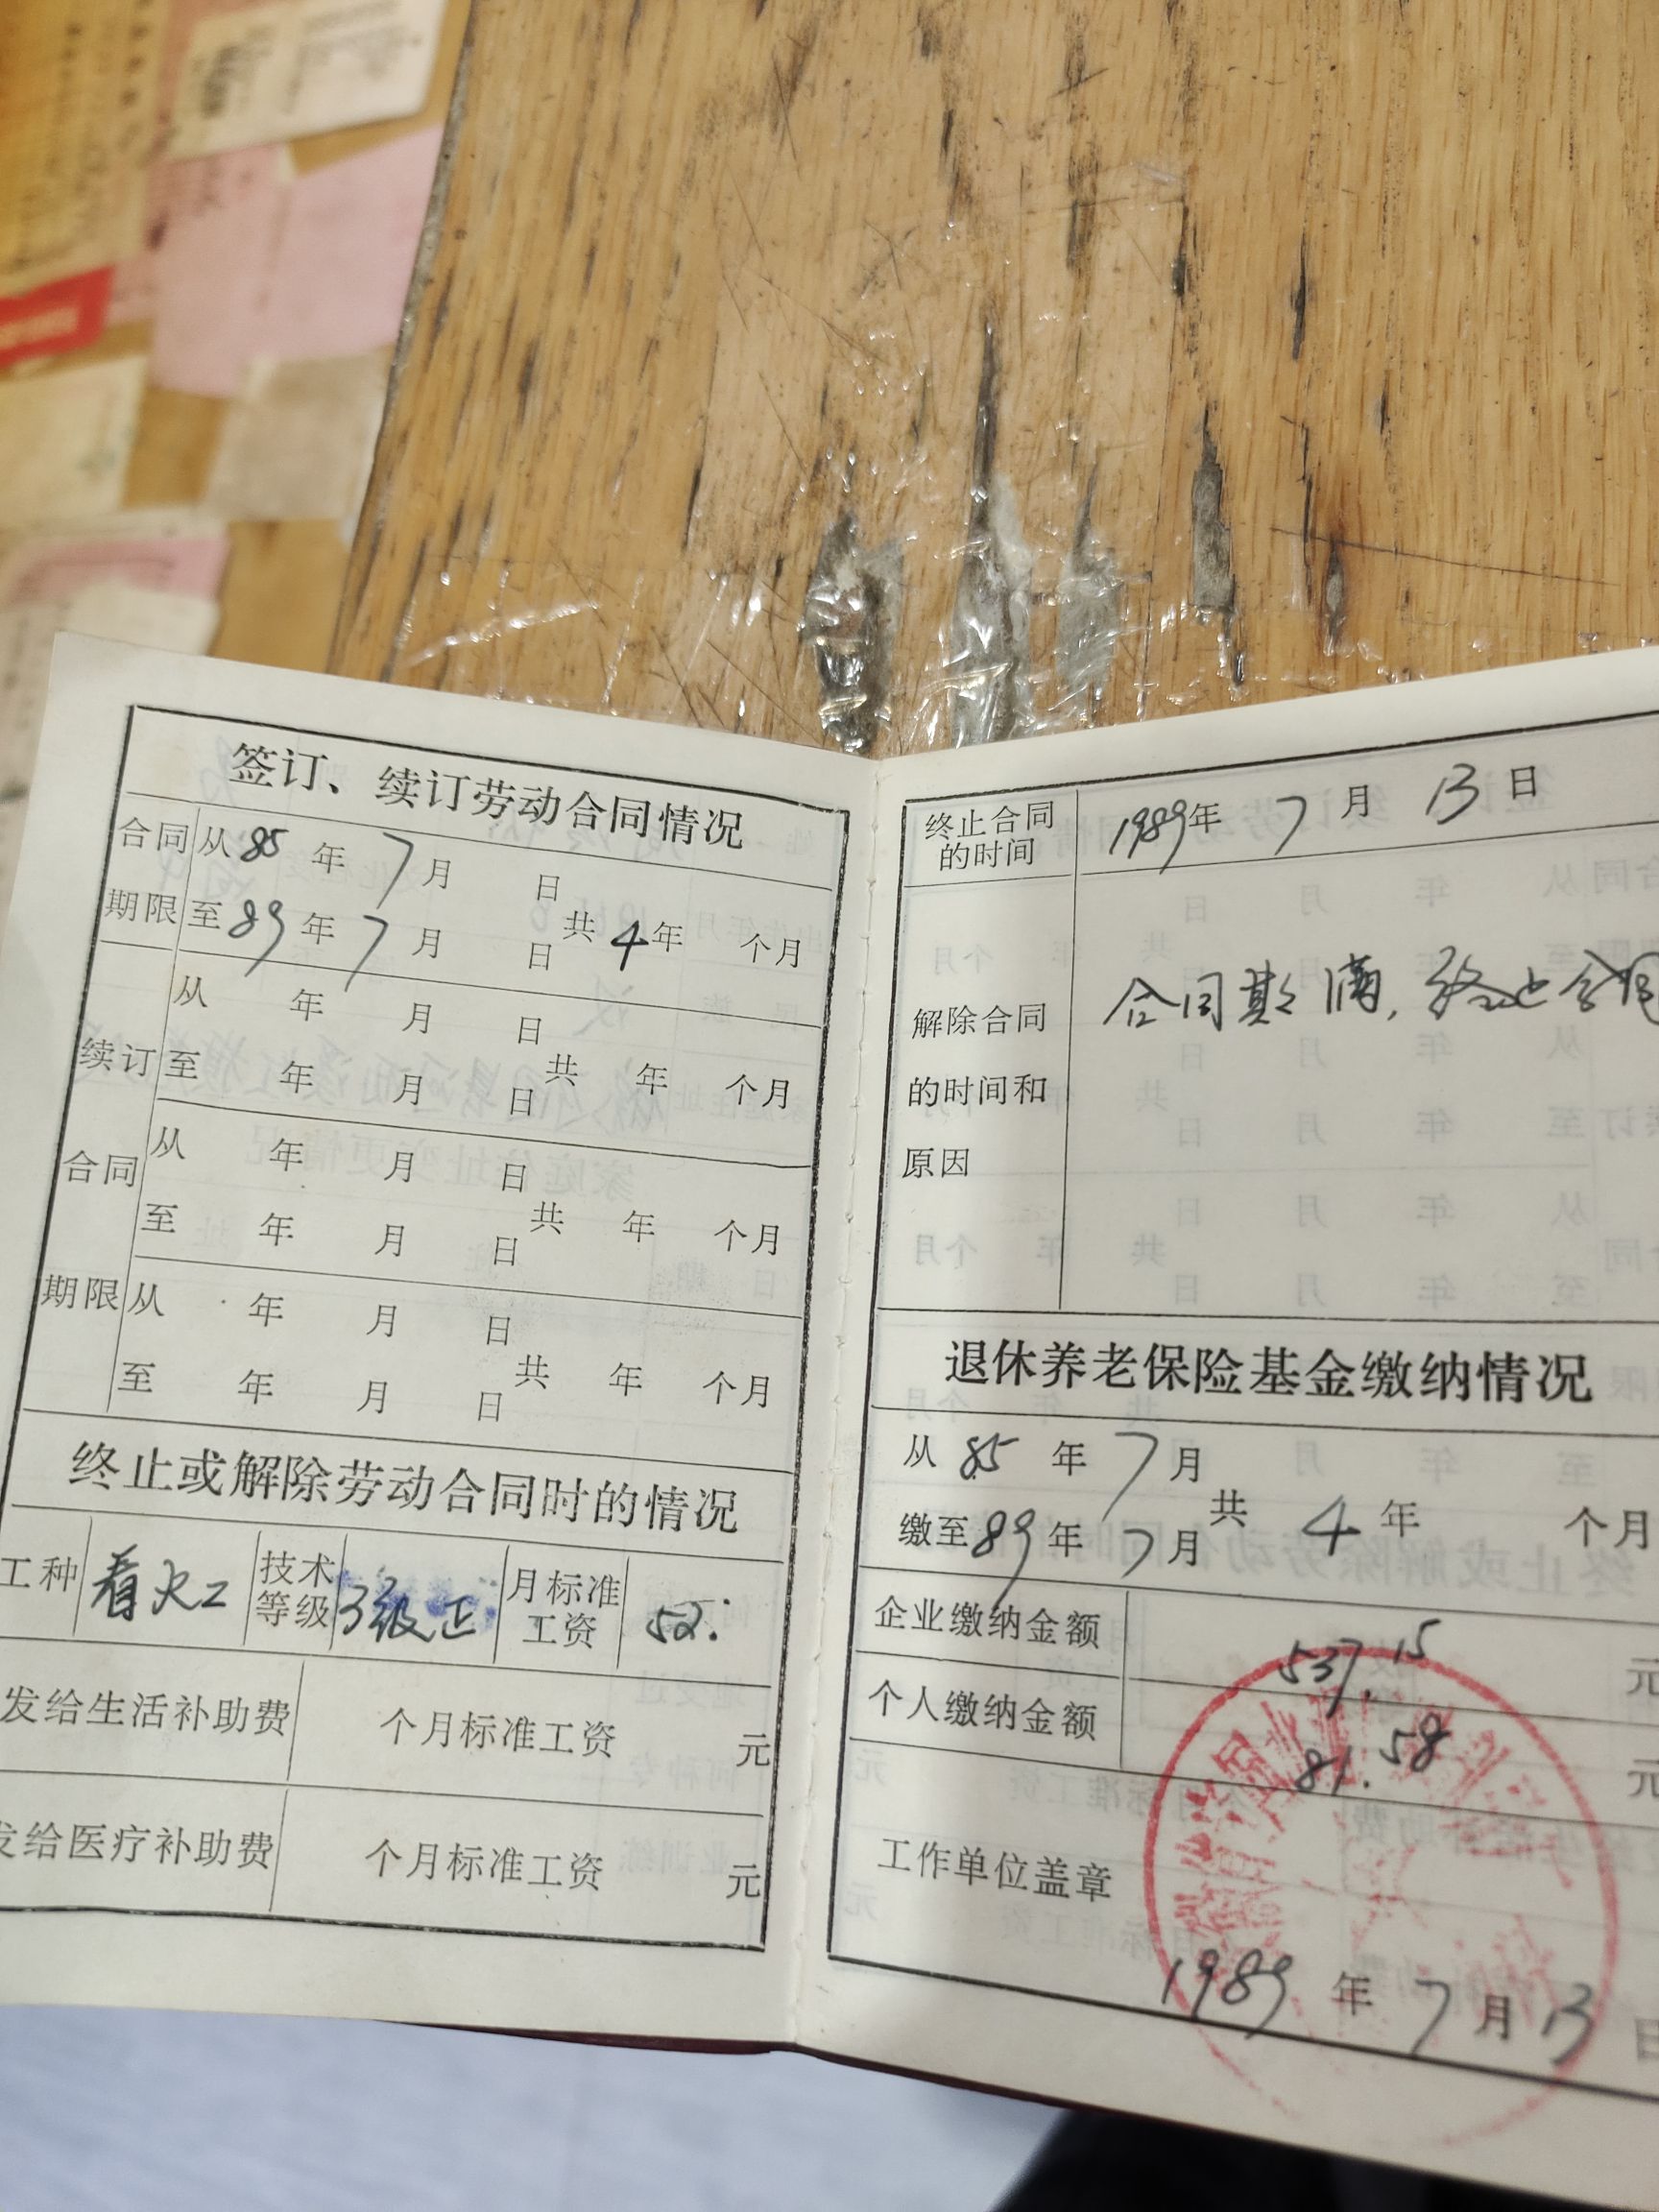 签订、续订劳动合同情况
合同 从85年7月 日
期限 至89年7月 日 共4年 个月
从 年 月 日
续订 至 年 月 日 共 年 个月
从 年 月 日
合同 至 年 月 日 共 年 个月
期限 从 年 月 日
至 年 月 日 共 年 个月
终止或解除劳动合同时的情况
工种 看火工 技术等级 3级正 月标准工资 52:
发给生活补助费 个月标准工资 元
发给医疗补助费 个月标准工资 元
终止合同的时间 1989年7月13日
解除合同的时间和原因 合同期满,终止合同
退休养老保险基金缴纳情况
从85年7月
缴至89年7月 共4年 个月
企业缴纳金额 537.15 元
个人缴纳金额 81.58 元
工作单位盖章
1989年7月13日